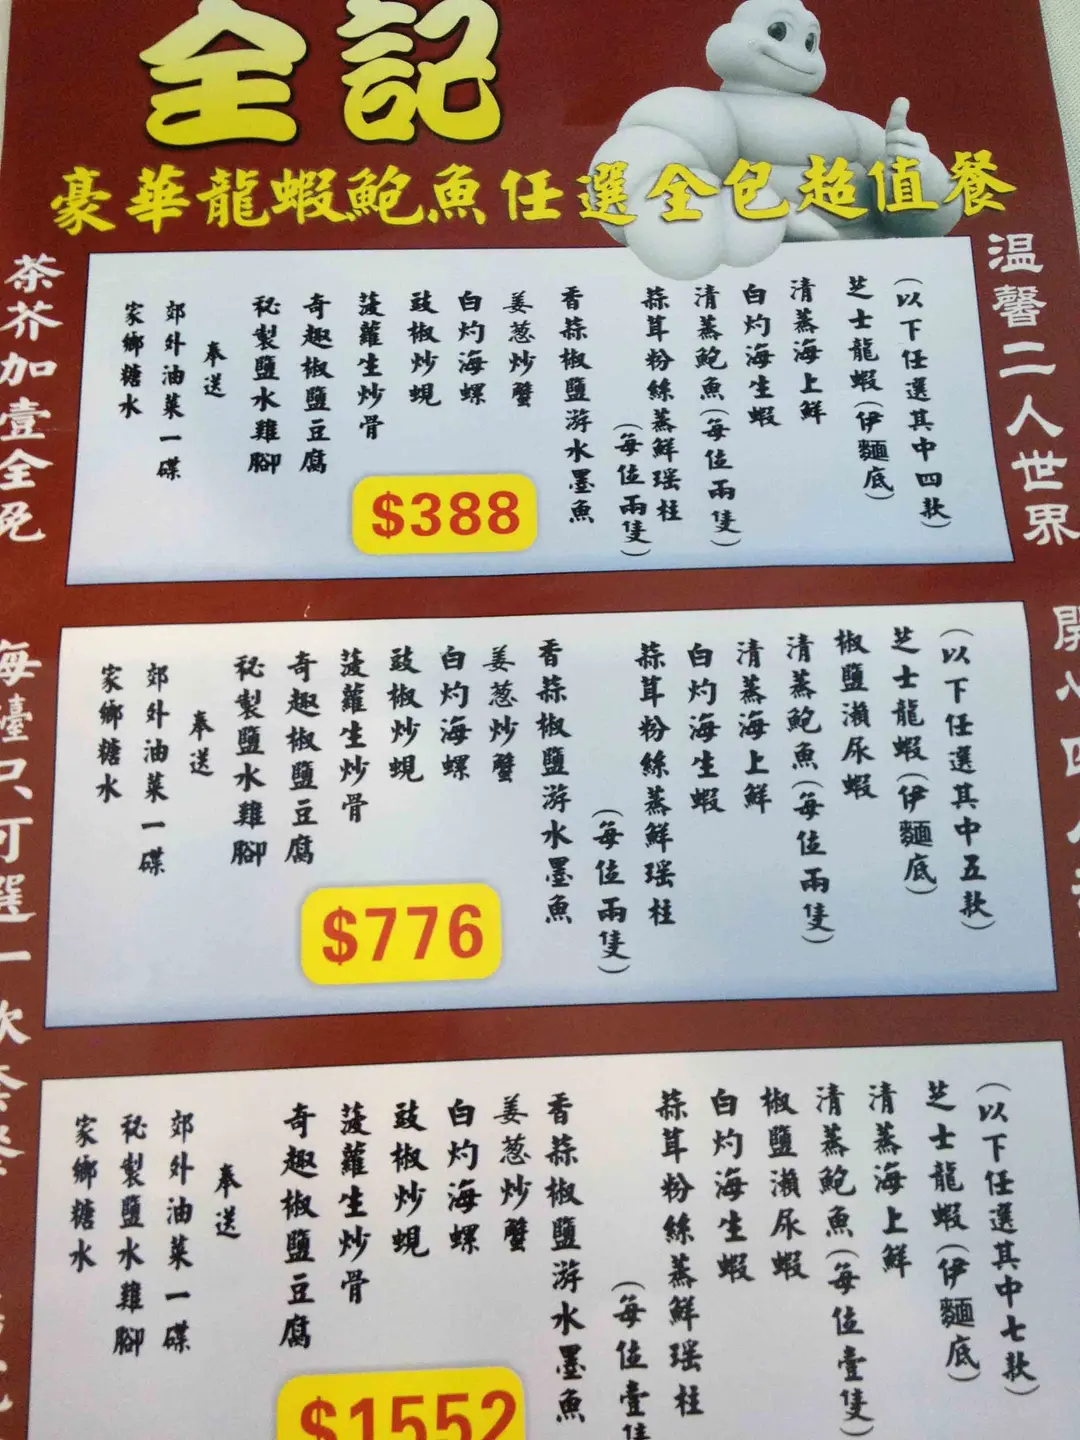 全記
豪華龍蝦鮑魚任選全包超值餐
溫馨二人世界
(以下任選其中四款)
芝士龍蝦(伊麵底)
清蒸海上鮮
白灼海生蝦
清蒸鮑魚(每位兩隻)
蒜茸粉絲蒸鮮瑶柱
(每位兩隻)
香蒜椒鹽游水墨魚
姜葱炒蟹
白灼海螺
豉椒炒蜆
菠蘿生炒骨
奇趣椒鹽豆腐
秘製鹽水雞腳
奉送
郊外油菜一碟
家鄉糖水
$388
(以下任選其中五款)
芝士龍蝦(伊麵底)
椒鹽瀨尿蝦
清蒸鮑魚(每位兩隻)
清蒸海上鮮
白灼海生蝦
蒜茸粉絲蒸鮮瑶柱
(每位兩隻)
香蒜椒鹽游水墨魚
姜葱炒蟹
白灼海螺
豉椒炒蜆
菠蘿生炒骨
奇趣椒鹽豆腐
秘製鹽水雞腳
奉送
郊外油菜一碟
家鄉糖水
$776
(以下任選其中七款)
芝士龍蝦(伊麵底)
清蒸海上鮮
清蒸鮑魚(每位壹隻)
椒鹽瀨尿蝦
白灼海生蝦
蒜茸粉絲蒸鮮瑶柱
(每位壹隻
香蒜椒鹽游水墨魚
姜葱炒蟹
白灼海螺
豉椒炒蜆
菠蘿生炒骨
奇趣椒鹽豆腐
奉送
郊外油菜一碟
秘製鹽水雞腳
家鄉糖水
$1552
茶芥加壹全免
每檯只可選一款套餐